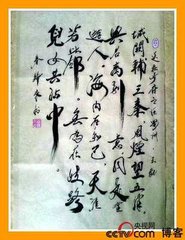 送杜少府之任蜀州 王勃
城闕輔三秦風煙望五津
与君離別意同是宦
遊人海内存知己天涯
若比鄰無為在歧路
兒女共沾巾
央视网
cctv.com 博客